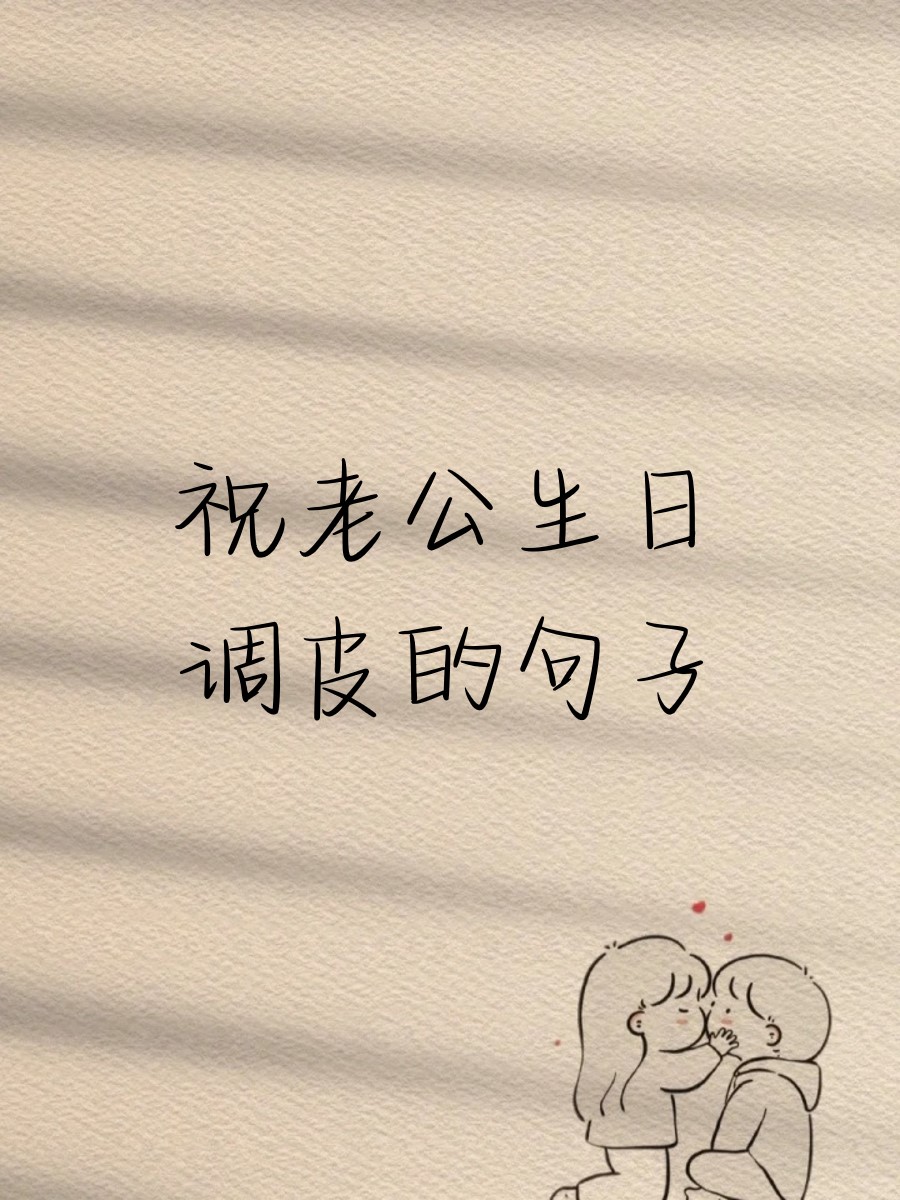 祝老公生日
调皮的句子